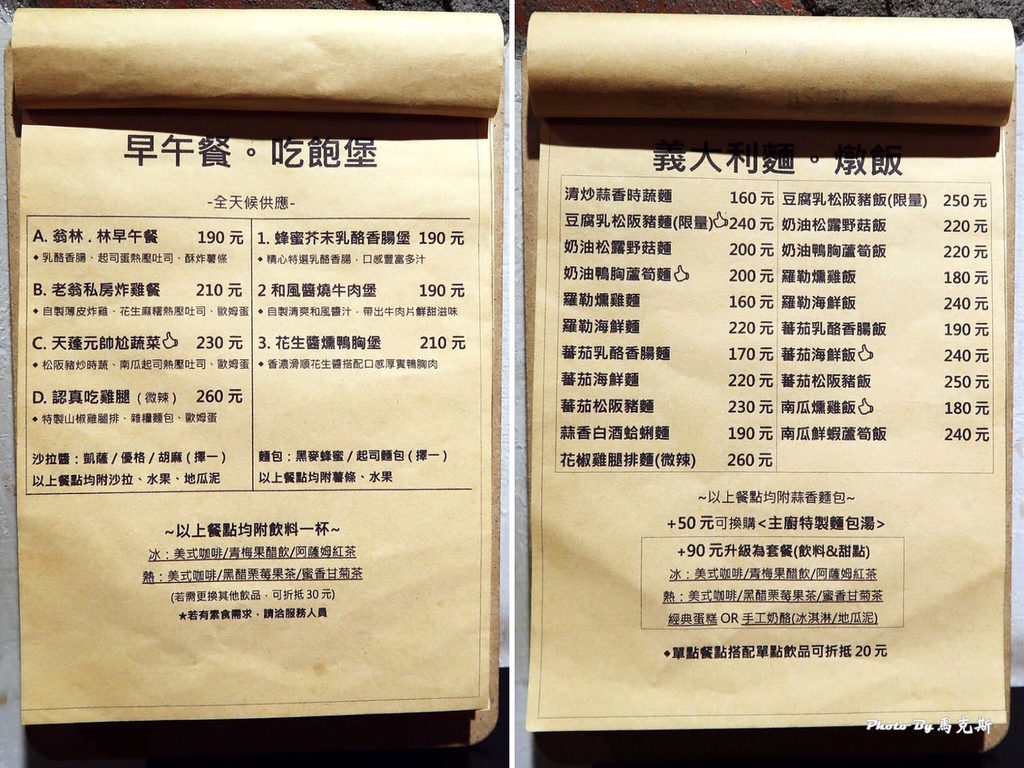 早午餐。吃飽堡
-全天候供應-
A. 翁林.林早午餐 190 元
◆乳酪香腸、起司蛋熱壓吐司、酥炸薯條
B. 老翁私房炸雞餐 210 元
◆自製薄皮炸雞、花生麻糬熱壓吐司、歐姆蛋
C. 天蓬元帥尬蔬菜 230 元
◆松阪豬炒時蔬、南瓜起司熱壓吐司、歐姆蛋
D. 認真吃雞腿(微辣) 260 元
◆特製山椒雞腿排、雜糧麵包、歐姆蛋
沙拉醬:凱薩/優格/胡麻(擇一)
以上餐點均附沙拉、水果、地瓜泥
1. 蜂蜜芥末乳酪香腸堡 190 元
◆精心特選乳酪香腸,口感豐富多汁
2 和風醬燒牛肉堡 190 元
◆自製清爽和風醬汁,帶出牛肉片鮮甜滋味
3. 花生醬燻鴨胸堡 210 元
◆香濃滑順花生醬搭配口感厚實鴨胸肉
麵包:黑麥蜂蜜/起司麵包(擇一)
以上餐點均附薯條、水果
~以上餐點均附飲料一杯~
冰:美式咖啡/青梅果醋飲/阿薩姆紅茶
熱:美式咖啡/黑醋栗莓果茶/蜜香甘菊茶
(若需更換其他飲品,可折抵 30 元)
★若有素食需求,請洽服務人員
義大利麵。燉飯
清炒蒜香時蔬麵 160 元
豆腐乳松阪豬麵(限量) 240 元
奶油松露野菇麵 200 元
奶油鴨胸蘆筍麵 200 元
羅勒燻雞麵 160 元
羅勒海鮮麵 220 元
蕃茄乳酪香腸麵 170 元
蕃茄海鮮麵 220 元
蕃茄松阪豬麵 230 元
蒜香白酒蛤蜊麵 190 元
花椒雞腿排麵(微辣) 260 元
豆腐乳松阪豬飯(限量) 250 元
奶油松露野菇飯 220 元
奶油鴨胸蘆筍飯 220 元
羅勒燻雞飯 180 元
羅勒海鮮飯 240 元
蕃茄乳酪香腸飯 190 元
蕃茄海鮮飯 240 元
蕃茄松阪豬飯 250 元
南瓜燻雞飯 180 元
南瓜鮮蝦蘆筍飯 240 元
~以上餐點均附蒜香麵包~
+50 元可換購<主廚特製麵包湯>
+90 元升級為套餐(飲料&甜點)
冰:美式咖啡/青梅果醋飲/阿薩姆紅茶
熱:美式咖啡/黑醋栗莓果茶/蜜香甘菊茶
經典蛋糕 OR 手工奶酪(冰淇淋/地瓜泥)
◆單點餐點搭配單點飲品可折抵 20 元
Photo By 馬克斯